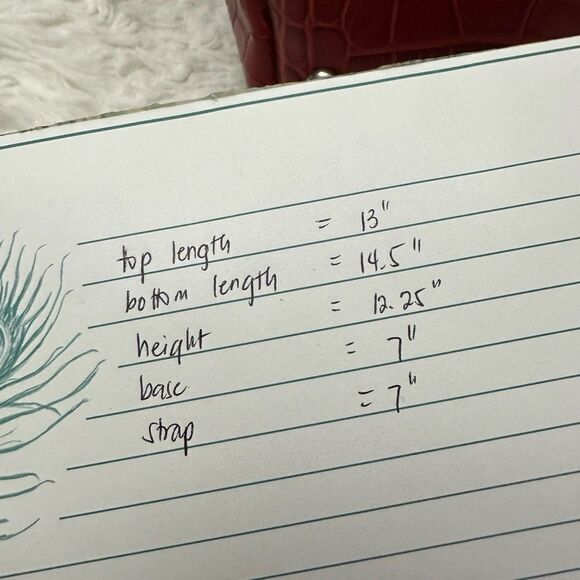 top length = 13"
bottom length = 14.5"
height = 12.25"
base = 7"
strap = 7"